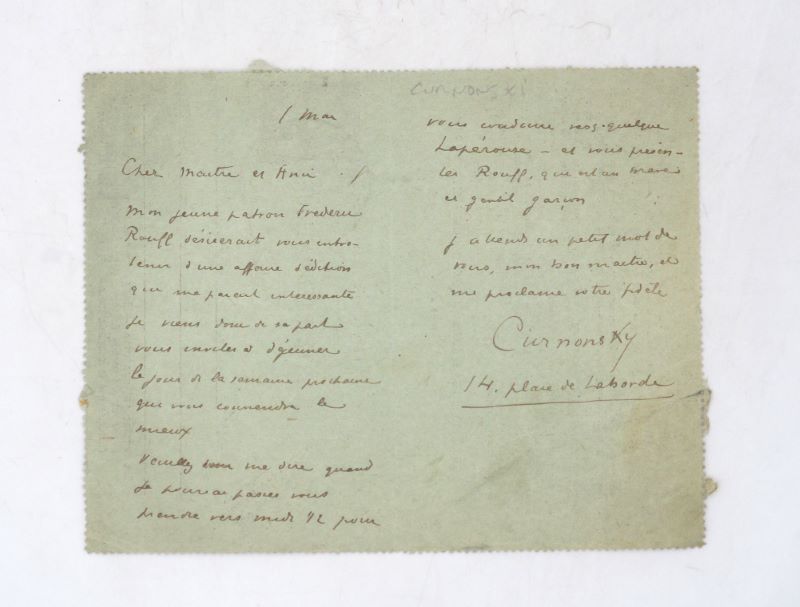 CURNONSKI
1 Mar
Cher Maitre et Ami
Mon jeune patron Frederic
Rouff désirerait vous entre-
tenir d'une affaire d'édition
qui me parait interessante
Je viens donc de sa part
vous inviter à déjeuner
le jour de la semaine prochaine
qui vous conviendra le
mieux
Veuillez donc me dire quand
je pourrai passer vous
prendre vers midi 1/2 pour
vous conduire quelque
Lapérouse - et vous présen-
ter Rouff, qui est un brave
et gentil garçon
J'attends un petit mot de
vous, mon bon maitre, et
me proclame votre fidèle
Curnonsky
14. place de Laborde